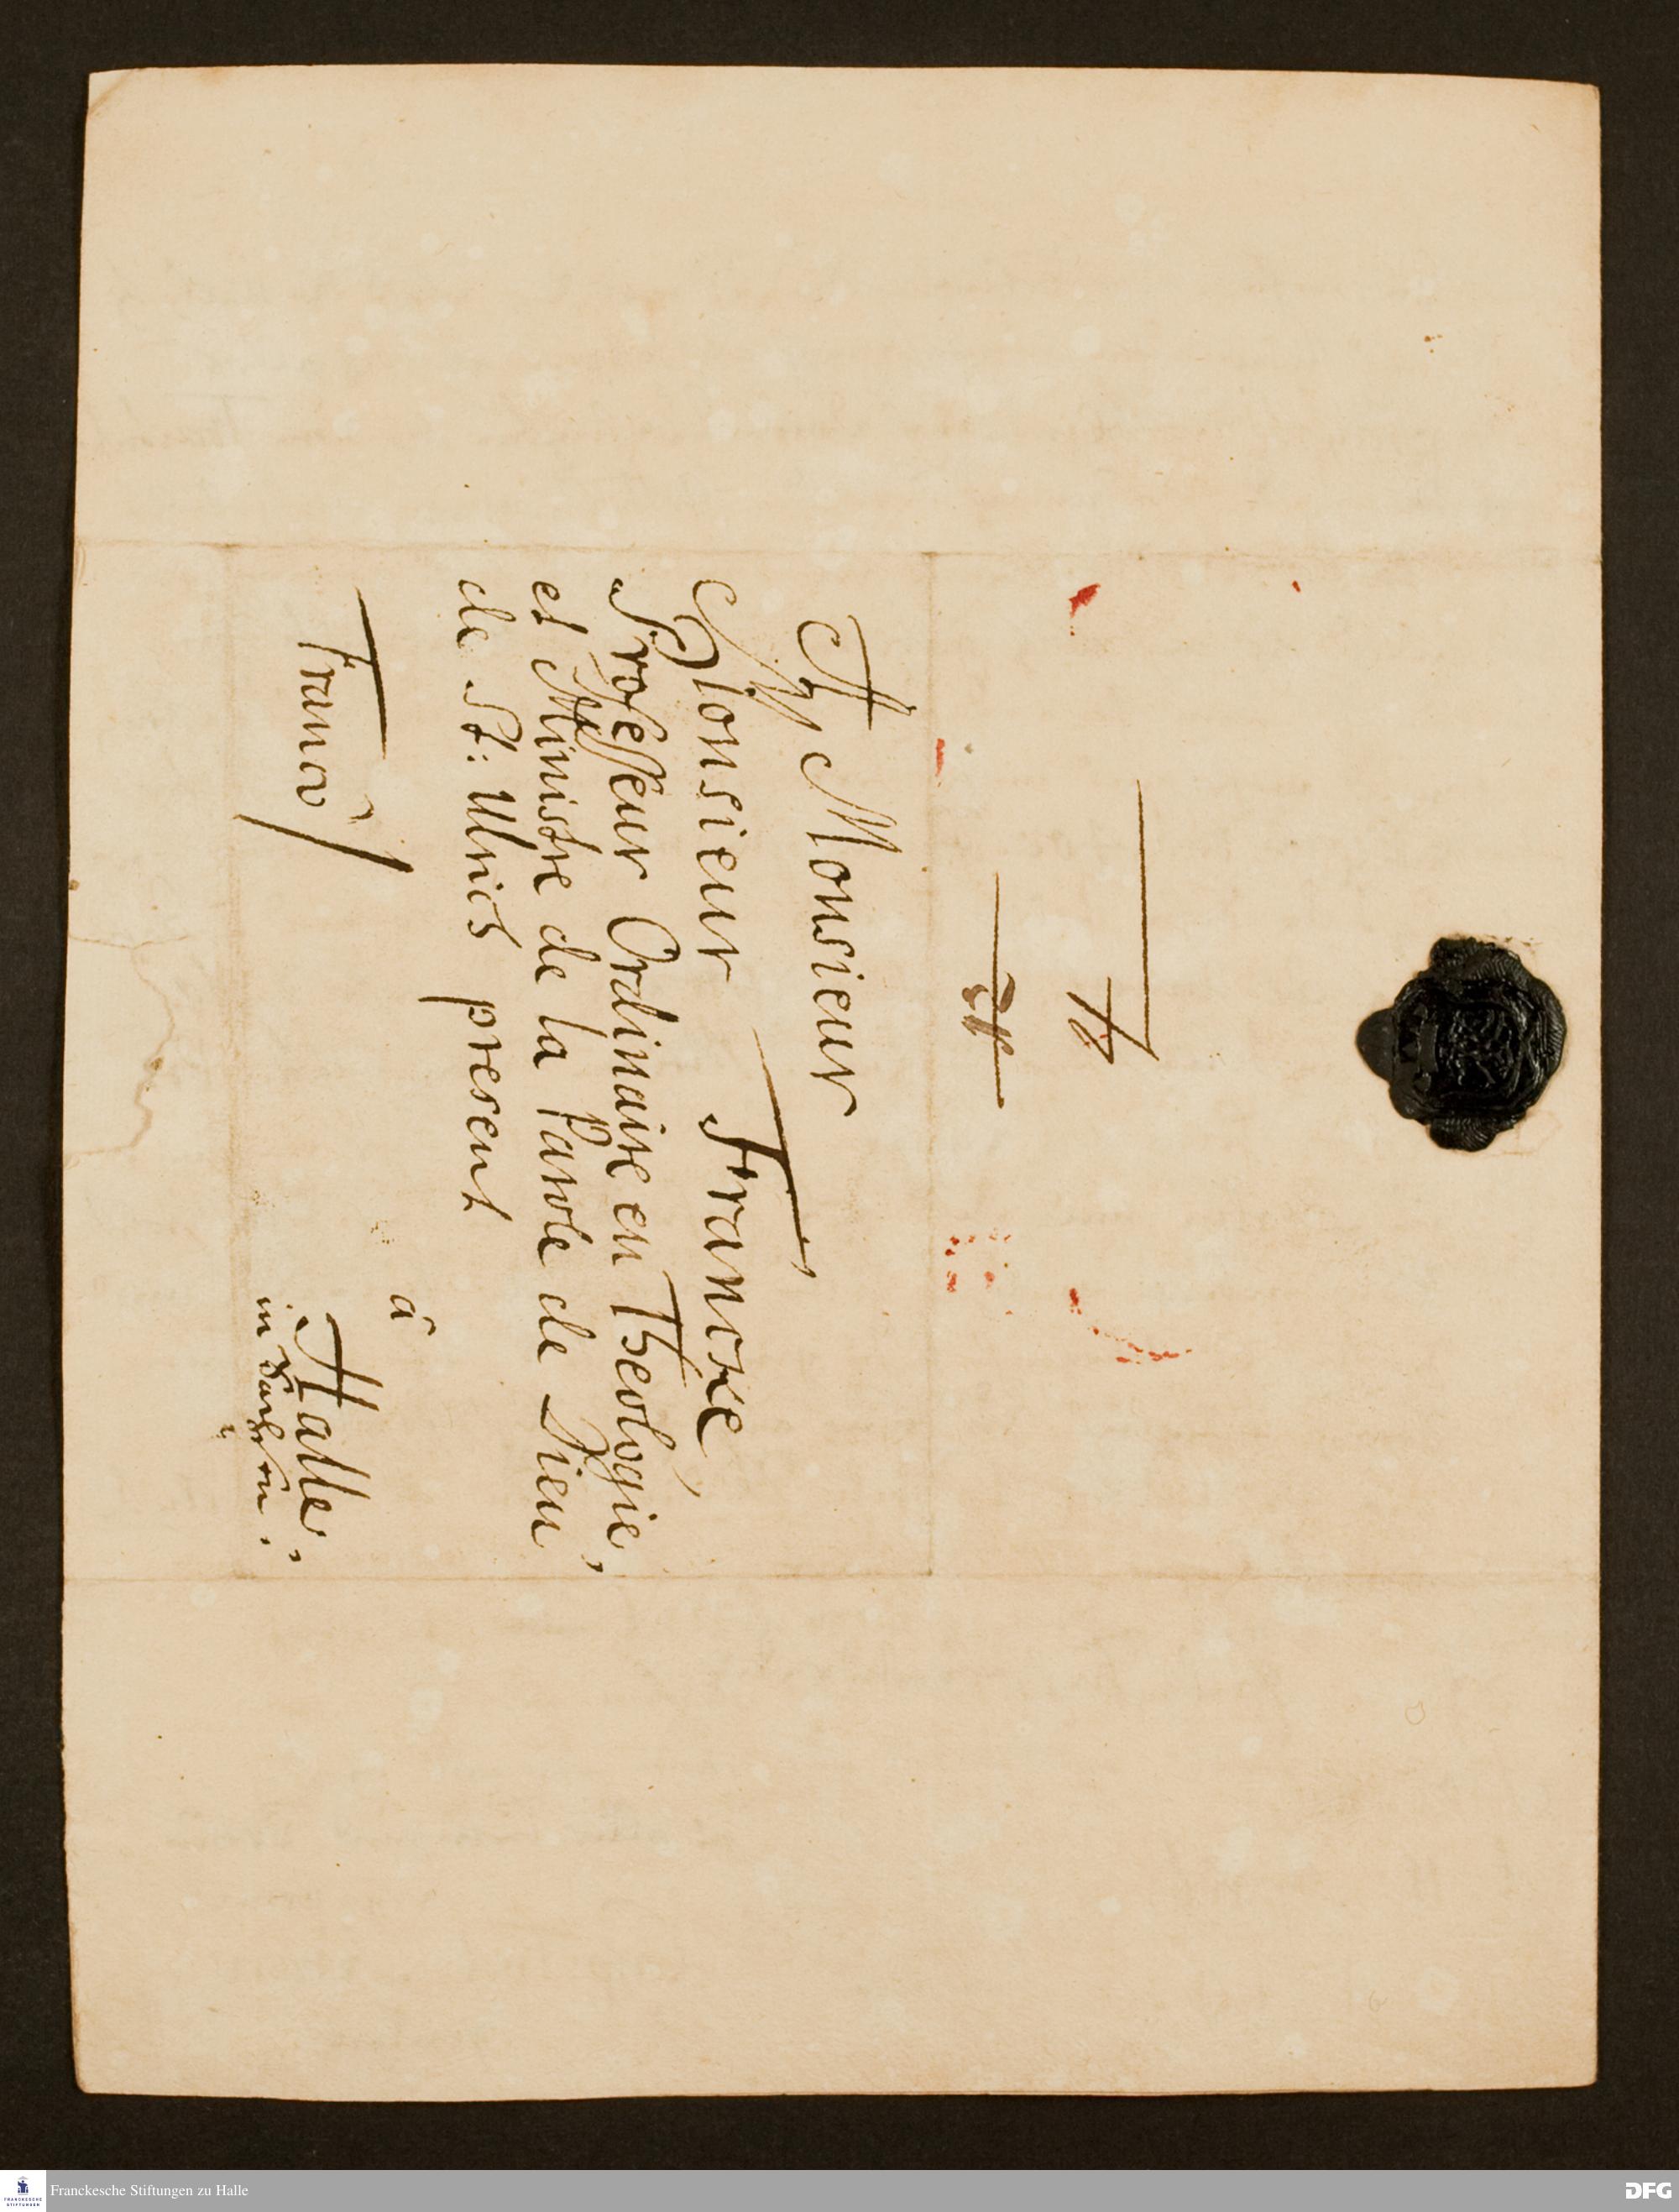 A Monsieur
Monsieur Francke,
Professeur Ordinaire en Theologie,
et Ministre de la Parole de Dieu
de St: Ulrich present
à
Halle.
Franco
in Sachsen.
Franckesche Stiftungen zu Halle
FRANCKESCHE STIFTUNGEN
DFG